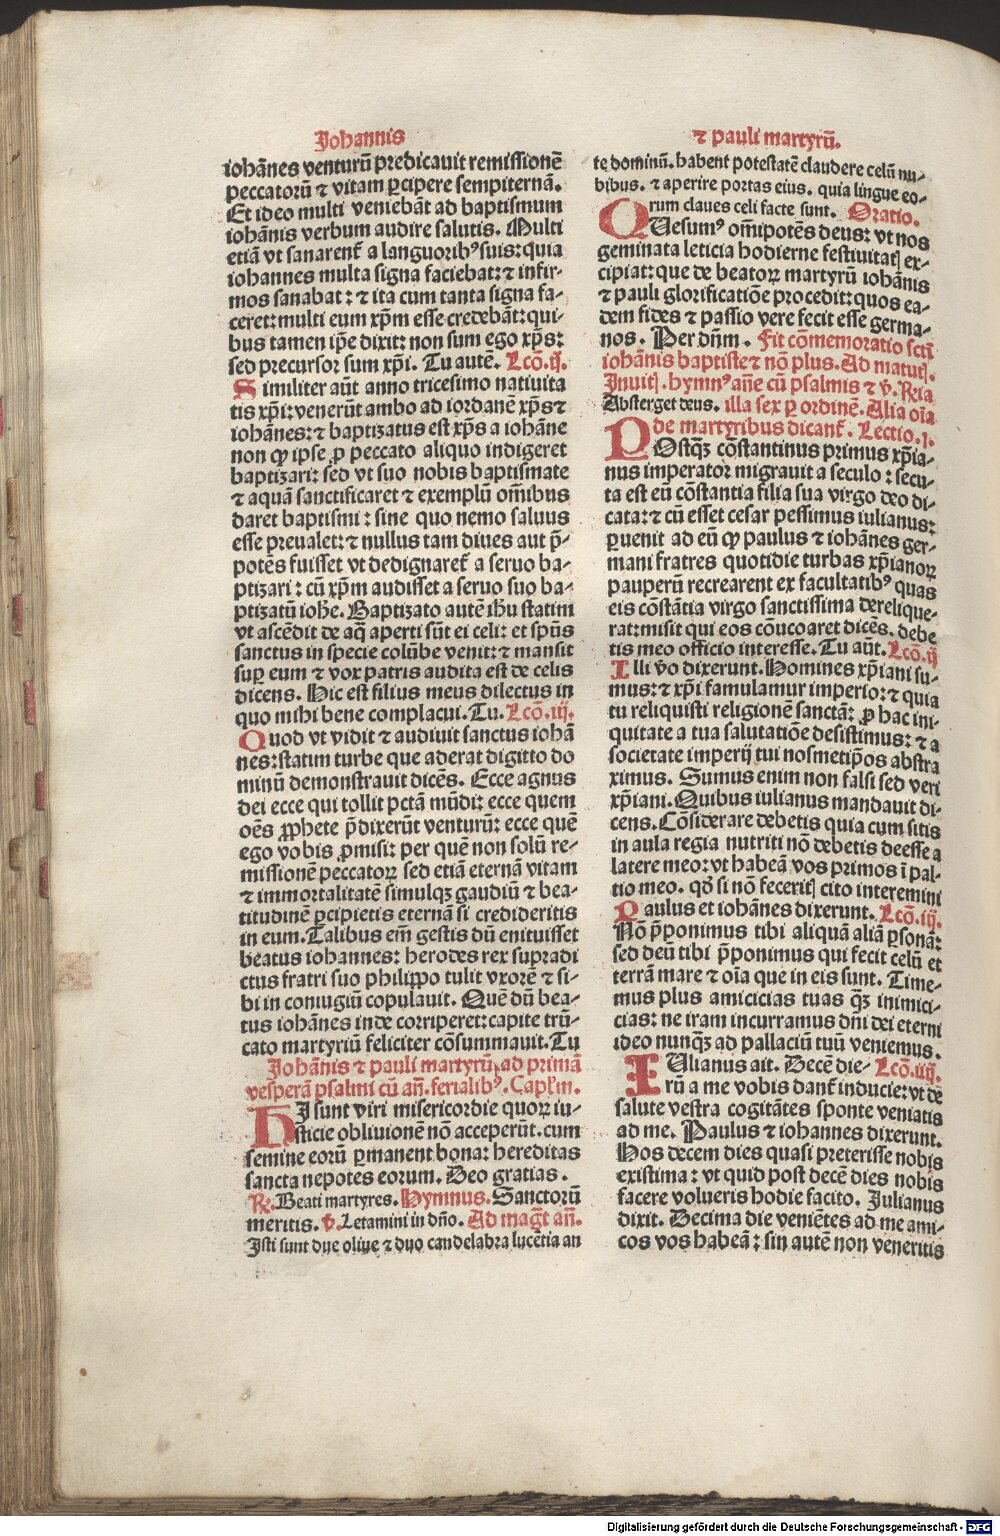 Johannis
iohānes venturū predicauit remissionē
peccatorū ⁊ vitam ꝑcipere sempiternā.
Et ideo multi veniebāt ad baptismum
iohānis verbum audire salutis. Multi
etiā vt sanarent᷑ a languoribꝰ suis: quia
iohannes multa signa faciebat: ⁊ infir-
mos sanabat: ⁊ ita cum tanta signa fa-
ceret: multi eum xp̄m esse credebāt: qui-
bus tamen ip̄e dixit: non sum ego xp̄s:
sed precursor sum xp̄i. Tu autē. Lcō.ij.
Similiter aūt anno tricesimo natiuita
tis xp̄i: venerūt ambo ad iordanē xp̄s ⁊
iohānes: ⁊ baptizatus est xp̄s a iohāne
non ꝙ ipse ꝓ peccato aliquo indigeret
baptizari: sed vt suo nobis baptismate
⁊ aquā sanctificaret ⁊ exemplū om̄ibus
daret baptismi: sine quo nemo saluus
esse preualet: ⁊ nullus tam diues aut p̄-
potēs fuisset vt dedignaret᷑ a seruo ba-
ptizari: cū xp̄m audisset a seruo suo ba-
ptizatū iohe. Baptizato autē ih̄u statim
vt ascēdit de aq̄ aperti sūt ei celi: et spūs
sanctus in specie colūbe venit: ⁊ mansit
suꝑ eum ⁊ vox patris audita est de celis
dicens. Hic est filius meus dilectus in
quo mihi bene complacui. Tu. Lcō.iij.
Quod vt vidit ⁊ audiuit sanctus iohā
nes: statim turbe que aderat digitto do
minū demonstrauit dicēs. Ecce agnus
dei ecce qui tollit pctā mūdi: ecce quem
oēs ꝓphete p̄dixerūt venturū: ecce quē
ego vobis ꝓmisi: per quē non solū re-
missionē peccatoꝝ sed etiā eternā vitam
⁊ immortalitatē simulqꝫ gaudiū ⁊ bea-
titudinē ꝑcipietis eternā si credideritis
in eum. Talibus em̄ gestis dū enituisset
beatus iohannes: herodes rex supradi
ctus fratri suo philippo tulit vxorē ⁊ si-
bi in coniugiū copulauit. Quē dū bea-
tus iohānes inde corriperet: capite trū-
cato martyriū feliciter cōsummauit. Tu
Johānis ⁊ pauli martyrū, ad primā
vesperā psalmi cū añ. ferialibꝰ. Capl̄m.
HI sunt viri misericordie quoꝝ iu-
sticie obliuionē nō acceperūt. cum
semine eorū ꝑmanent bona: hereditas
sancta nepotes eorum. Deo gratias.
℟. Beati martyres. Hymnus. Sanctorū
meritis. ℣. Letamini in dño. Ad magt̄ añ.
Isti sunt due oliue ⁊ duo candelabra lucētia an
⁊ pauli martyrū.
te dominū. habent potestatē claudere celū nu-
bibus. ⁊ aperire portas eius. quia lingue eo-
rum claues celi facte sunt. Oratio.
QUesumꝰ om̄ipotēs deus: vt nos
geminata leticia hodierne festiuitatꝭ ex-
cipiat: que de beatoꝝ martyrū iohānis
⁊ pauli glorificatiōe procedit: quos ea-
dem fides ⁊ passio vere fecit esse germa-
nos. Per dn̄m. Fit cōmemoratio scti
iohānis baptiste ⁊ nō plus. Ad matutꝭ.
Inuitꝭ. hymnꝰ añe cū psalmis ⁊ ℣. ℟ria
Absterget deus. illa sex ꝑ ordinē. Alia oīa
de martyribus dicant᷑. Lectio.i.
POstqꝫ cōstantinus primus xp̄ia-
nus imperator migrauit a seculo: secu-
ta est eū cōstantia filia sua virgo deo di-
cata: ⁊ cū esset cesar pessimus iulianus:
ꝑuenit ad eū ꝙ paulus ⁊ iohānes ger-
mani fratres quotidie turbas xp̄ianoꝝ
pauperū recrearent ex facultatibꝰ quas
eis cōstātia virgo sanctissima derelique-
rat: misit qui eos cōuocaret dicēs. debe
tis meo officio interesse. Tu aūt. Lcō.ij
Illi v̄o dixerunt. Homines xp̄iani su-
mus: ⁊ xp̄i famulamur imperio: ⁊ quia
tu reliquisti religionē sanctā: ꝓ hac ini-
quitate a tua salutatiōe desistimus: ⁊ a
societate imperij tui nosmetip̄os abstra
ximus. Sumus enim non falsi sed veri
xp̄iani. Quibus iulianus mandauit di-
cens. Cōsiderare debetis quia cum sitis
in aula regia nutriti nō debetis deesse a
latere meo: vt habeā vos primos ī pal-
tio meo. qd̓ si nō feceritꝭ cito interemini
Paulus et iohānes dixerunt. Lcō.iij.
Nō p̄ponimus tibi aliquā aliā ꝑsonā:
sed deū tibi p̄ponimus qui fecit celū et
terrā mare ⁊ oīa que in eis sunt. Time-
mus plus amicicias tuas qꝫ inimici-
cias: ne iram incurramus dni dei eterni
ideo nunqꝫ ad pallaciū tuū veniemus.
IUlianus ait. Decē die- Lcō.iiij.
rū a me vobis dant᷑ inducie: vt de
salute vestra cogitātes sponte veniatis
ad me. Paulus ⁊ iohannes dixerunt.
Nos decem dies quasi preterisse nobis
existima: vt quid post decē dies nobis
facere volueris hodie facito. Julianus
dixit. Decima die veniētes ad me ami-
cos vos habeā: sin autē non veneritis
Digitalisierung gefördert durch die Deutsche Forschungsgemeinschaft - DFG